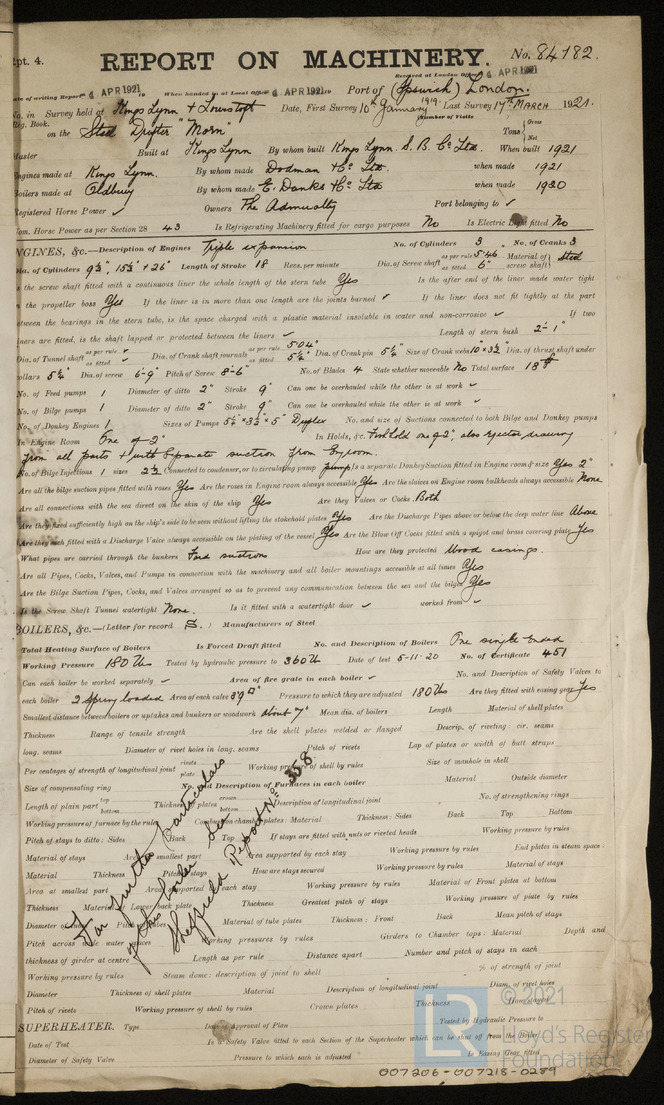 Rpt. 4.
REPORT ON MACHINERY. No. 84182.
Received at London Office 4 APR 1921
Date of writing Report 4 APR 1921 When handed in at Local Office 4 APR 1921 Port of (Ipswich) London.
No. in Survey held at Kings Lynn & Lowestoft Date, First Survey 10th January 1919 Last Survey 17th MARCH 1921.
Reg. Book. (Number of Visits
on the Steel Drifter "Morn" Tons Gross Net
Master Built at Kings Lynn By whom built Kings Lynn S. B. Co Ltd. When built 1921
Engines made at Kings Lynn. By whom made Dodman & Co Ltd. when made 1921
Boilers made at Oldbury By whom made E. Danks & Co Ltd when made 1920
Registered Horse Power ✓ Owners The Admiralty Port belonging to ✓
Nom. Horse Power as per Section 28 43 Is Refrigerating Machinery fitted for cargo purposes No Is Electric Light fitted No
ENGINES, &c.—Description of Engines Triple expansion No. of Cylinders 3 No. of Cranks 3
Dia. of Cylinders 9½", 15½" & 26" Length of Stroke 18 Revs. per minute Dia. of Screw shaft as per rule 5.46 as fitted 6" Material of screw shaft Steel
Is the screw shaft fitted with a continuous liner the whole length of the stern tube Yes Is the after end of the liner made water tight
in the propeller boss Yes If the liner is in more than one length are the joints burned ✓ If the liner does not fit tightly at the part
between the bearings in the stern tube, is the space charged with a plastic material insoluble in water and non-corrosive ✓ If two
liners are fitted, is the shaft lapped or protected between the liners ✓ Length of stern bush 2'-1"
Dia. of Tunnel shaft as per rule ✓ as fitted ✓ Dia. of Crank shaft journals as per rule 5.04" as fitted 5¼" Dia. of Crank pin 5¼" Size of Crank webs 10"×3½" Dia. of thrust shaft under
collars 5¼" Dia. of screw 6'-9" Pitch of Screw 8'-6" No. of Blades 4 State whether moveable No Total surface 18 #
No. of Feed pumps 1 Diameter of ditto 2" Stroke 9" Can one be overhauled while the other is at work ✓
No. of Bilge pumps 1 Diameter of ditto 2" Stroke 9" Can one be overhauled while the other is at work ✓
No. of Donkey Engines 1 Sizes of Pumps 5¼"×3½"×5" Duplex No. and size of Suctions connected to both Bilge and Donkey pumps
In Engine Room One of 2" In Holds, &c. Fishhold one of 2", also ejector drawing
from all parts & with separate suction from E. room.
No. of Bilge Injections 1 sizes 2½ Connected to condenser, or to circulating pump pump Is a separate Donkey Suction fitted in Engine room & size Yes 2"
Are all the bilge suction pipes fitted with roses Yes Are the roses in Engine room always accessible Yes Are the sluices on Engine room bulkheads always accessible None
Are all connections with the sea direct on the skin of the ship Yes Are they Valves or Cocks Both
Are they fixed sufficiently high on the ship's side to be seen without lifting the stokehold plates Yes Are the Discharge Pipes above or below the deep water line Above
Are they each fitted with a Discharge Valve always accessible on the plating of the vessel Yes Are the Blow Off Cocks fitted with a spigot and brass covering plate Yes
What pipes are carried through the bunkers Fwd suctions How are they protected Wood casings.
Are all Pipes, Cocks, Valves, and Pumps in connection with the machinery and all boiler mountings accessible at all times Yes
Are the Bilge Suction Pipes, Cocks, and Valves arranged so as to prevent any communication between the sea and the bilges Yes
Is the Screw Shaft Tunnel watertight None. Is it fitted with a watertight door ✓ worked from ✓
BOILERS, &c.—(Letter for record S.) Manufacturers of Steel
Total Heating Surface of Boilers Is Forced Draft fitted No. and Description of Boilers One single Ended
Working Pressure 180 lbs Tested by hydraulic pressure to 360 lbs Date of test 5-11-20 No. of Certificate 451
Can each boiler be worked separately ✓ Area of fire grate in each boiler ✓ No. and Description of Safety Valves to
each boiler 2 Spring loaded Area of each valve 3.9 □" Pressure to which they are adjusted 180 lbs Are they fitted with easing gear Yes
Smallest distance between boilers or uptakes and bunkers or woodwork about 7" Mean dia. of boilers Length Material of shell plates
Thickness Range of tensile strength Are the shell plates welded or flanged Descrip. of riveting: cir. seams
long. seams Diameter of rivet holes in long. seams Pitch of rivets Lap of plates or width of butt straps
Per centages of strength of longitudinal joint rivets plate Working pressure of shell by rules Size of manhole in shell
Size of compensating ring No. and Description of Furnaces in each boiler Material Outside diameter
Length of plain part top bottom Thickness of plates crown bottom Description of longitudinal joint No. of strengthening rings
Working pressure of furnace by the rules Combustion chamber plates: Material Thickness: Sides Back Top Bottom
Pitch of stays to ditto: Sides Back Top If stays are fitted with nuts or riveted heads Working pressure by rules
Material of stays Area at smallest part Area supported by each stay Working pressure by rules End plates in steam space:
Material Thickness Pitch of stays How are stays secured Working pressure by rules Material of stays
Area at smallest part Area supported by each stay Working pressure by rules Material of Front plates at bottom
Thickness Material of Lower back plate Thickness Greatest pitch of stays Working pressure of plate by rules
Diameter of tubes Pitch of tubes Material of tube plates Thickness: Front Back Mean pitch of stays
Pitch across wide water spaces Working pressures by rules Girders to Chamber tops: Material Depth and
thickness of girder at centre Length as per rule Distance apart Number and pitch of stays in each
Working pressure by rules Steam dome: description of joint to shell % of strength of joint
Diameter Thickness of shell plates Material Description of longitudinal joint Diam. of rivet holes
Pitch of rivets Working pressure of shell by rules Crown plates Thickness How stayed
For further particulars
of this boiler see
Sheffield Report No. 358
SUPERHEATER. Type Date of Approval of Plan Tested by Hydraulic Pressure to
Date of Test Is a Safety Valve fitted to each Section of the Superheater which can be shut off from the Boiler
Diameter of Safety Valve Pressure to which each is adjusted Is Easing Gear fitted
© 2021
Lloyd's Register
Foundation
007206-007218-0289